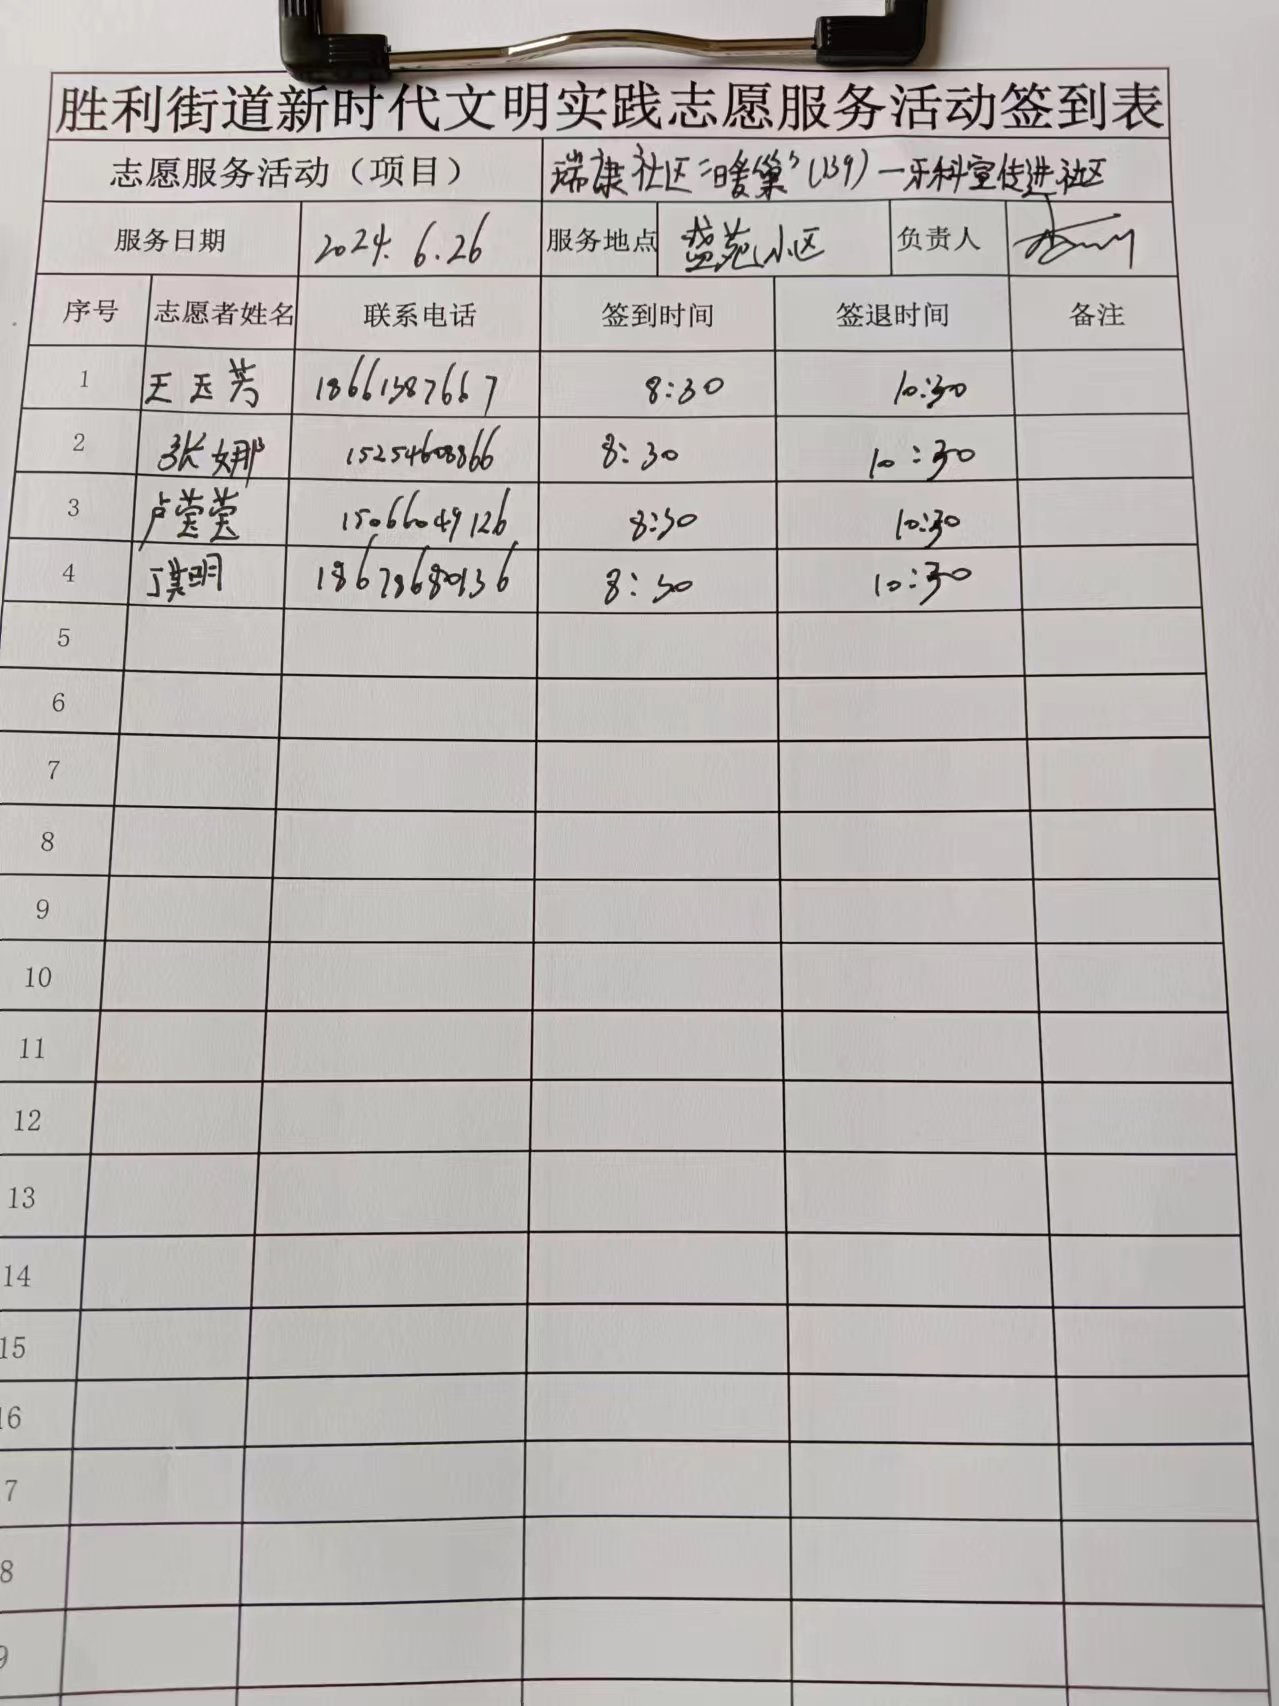 胜利街道新时代文明实践志愿服务活动签到表
志愿服务活动（项目） 瑞康社区“暖巢”(139)—牙科宣传进社区
服务日期 2024.6.26 服务地点 盛苑小区 负责人
序号 志愿者姓名 联系电话 签到时间 签退时间 备注
1 王玉芳 18661387667 8:30 10:30
2 张娜 15254608866 8:30 10:30
3 卢莹莹 15066049126 8:30 10:30
4 18678680136 8:30 10:30
5
6
7
8
9
10
11
12
13
14
15
16
7
8
9